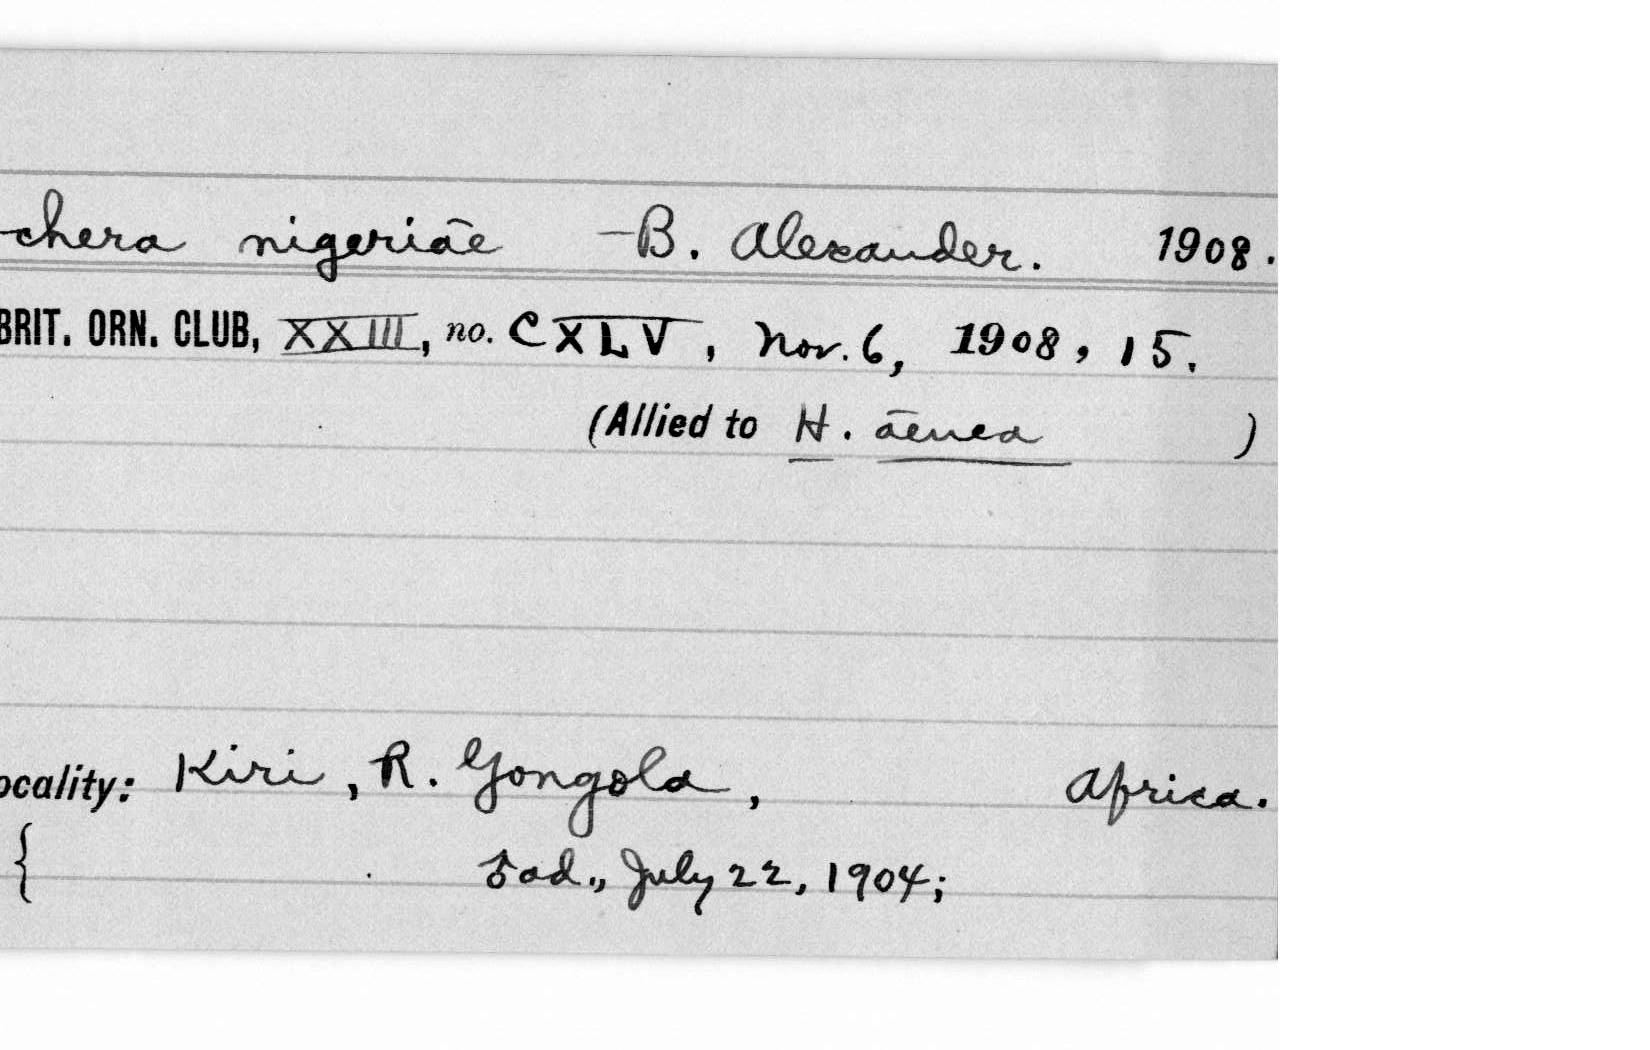 -chera nigeriae - B. Alexander. 1908.
BRIT. ORN. CLUB, XXIII, no. CXLV, Nov. 6, 1908, 15.
(Allied to H. aenea )
ocality: Kiri, R. Gongola, Africa.
{ ♂ad., July 22, 1904;